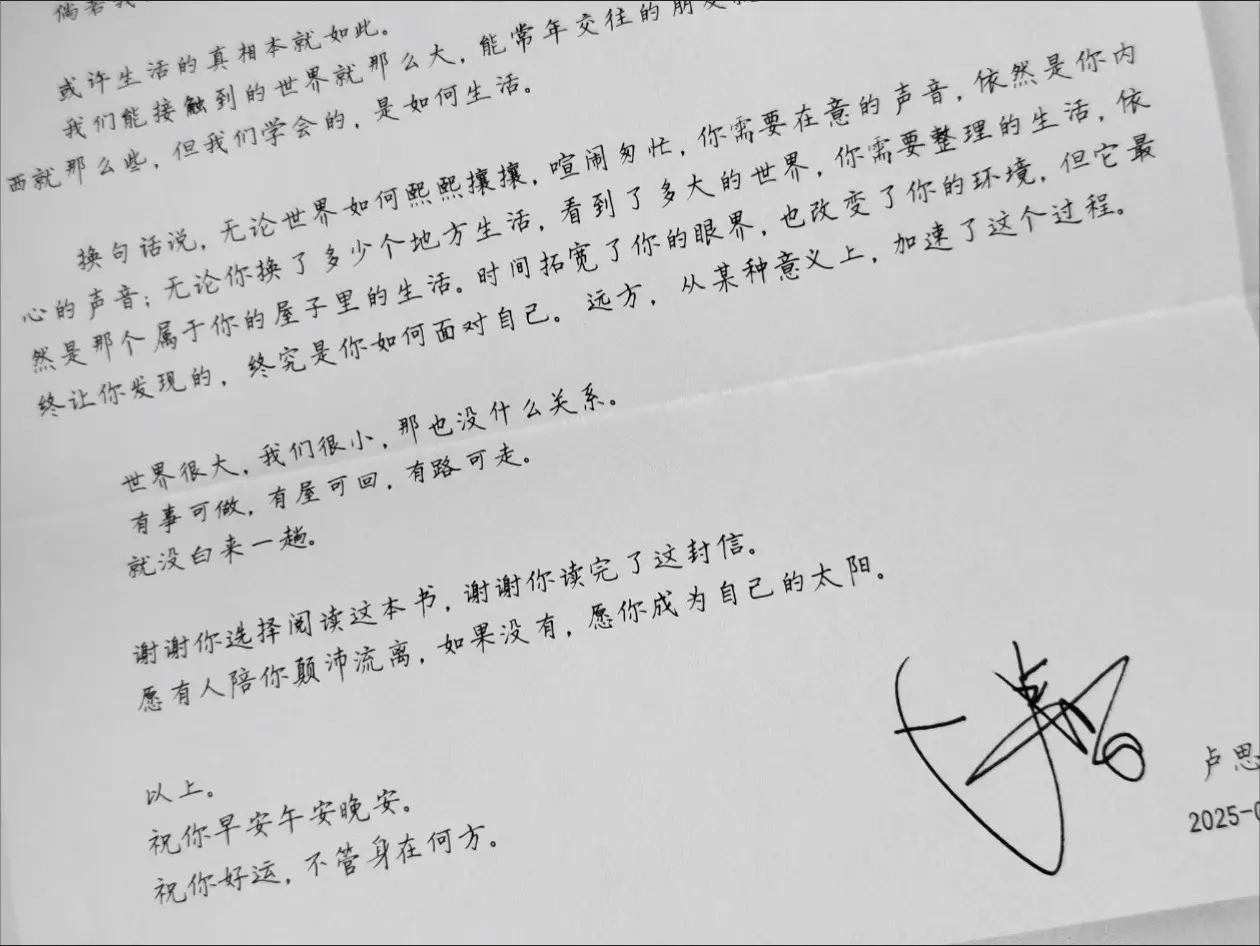 倘若我
或许生活的真相本就如此。
我们能接触到的世界就那么大，能常年交往的朋友就
西就那么些，但我们学会的，是如何生活。
换句话说，无论世界如何熙熙攘攘，喧闹匆忙，你需要在意的声音，依然是你内
心的声音；无论你换了多少个地方生活，看到了多大的世界，你需要整理的生活，依
然是那个属于你的屋子里的生活。时间拓宽了你的眼界，也改变了你的环境，但它最
终让你发现的，终究是你如何面对自己。远方，从某种意义上，加速了这个过程。
世界很大，我们很小，那也没什么关系。
有事可做，有屋可回，有路可走。
就没白来一趟。
谢谢你选择阅读这本书，谢谢你读完了这封信。
愿有人陪你颠沛流离，如果没有，愿你成为自己的太阳。
以上。
祝你早安午安晚安。
祝你好运，不管身在何方。
卢思
2025-0